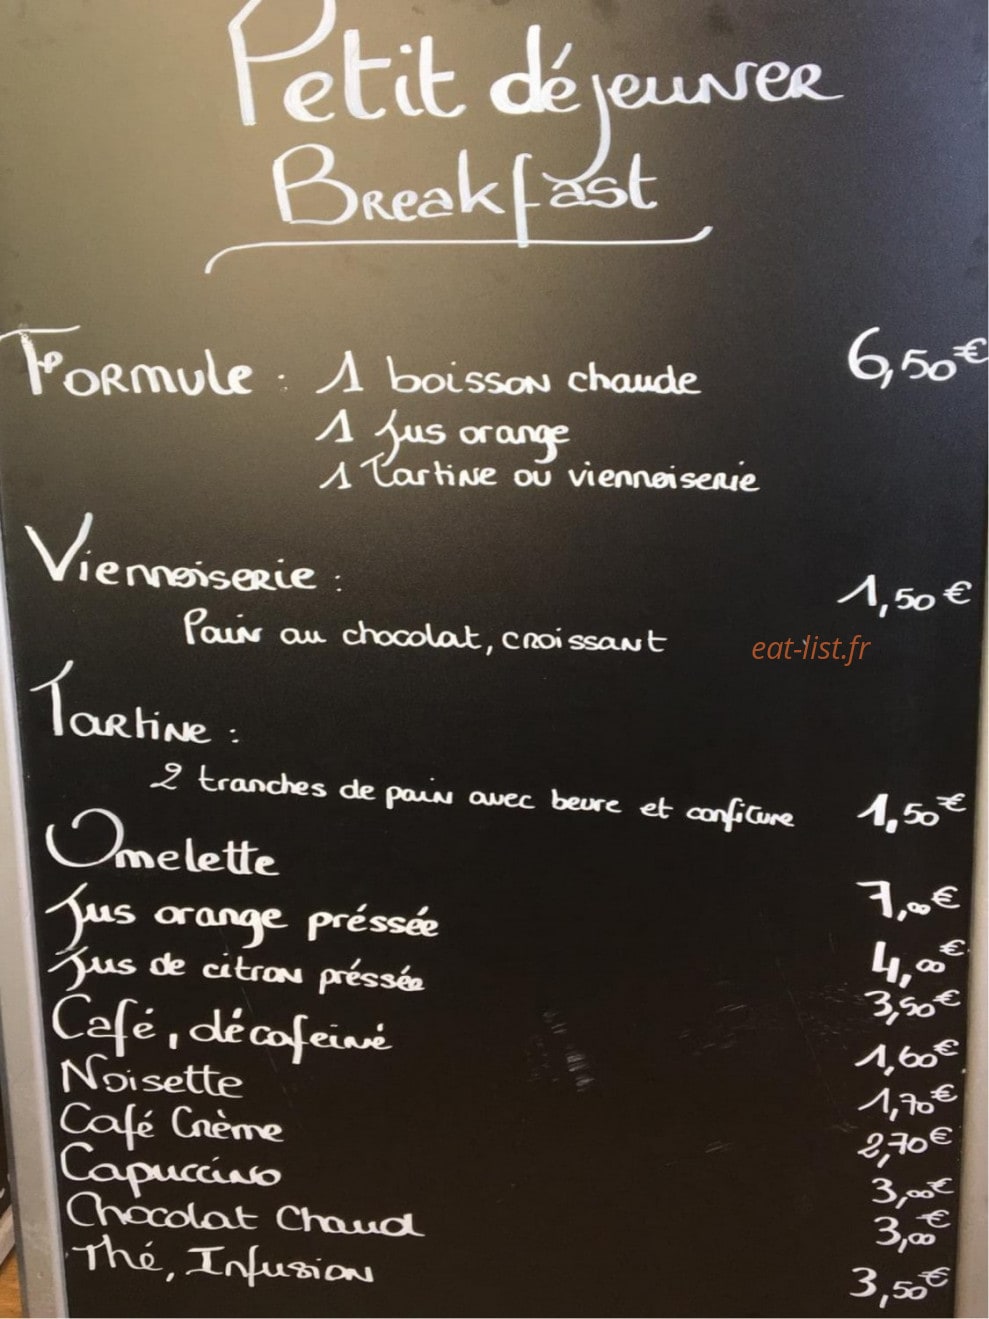 Petit déjeuner
Breakfast
Formule : 1 boisson chaude 6,50€
1 jus orange
1 Tartine ou viennoiserie
Viennoiserie : 1,50€
Pain au chocolat, croissant
eat-list.fr
Tartine :
2 tranches de pain avec beure et confiture 1,50€
Omelette 7,00€
Jus orange préssée 4,00€
Jus de citron préssée 3,50€
Café, décafeiné 1,60€
Noisette 1,70€
Café Crème 2,70€
Capuccino 3,00€
Chocolat Chaud 3,00€
Thé, Infusion 3,50€